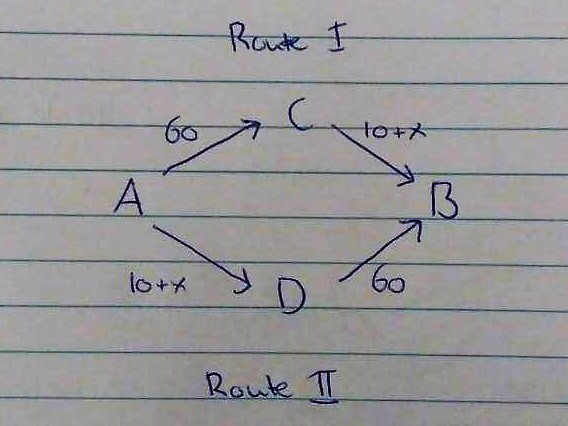 Route I
C
60 10+x
A B
10+x D 60
Route II